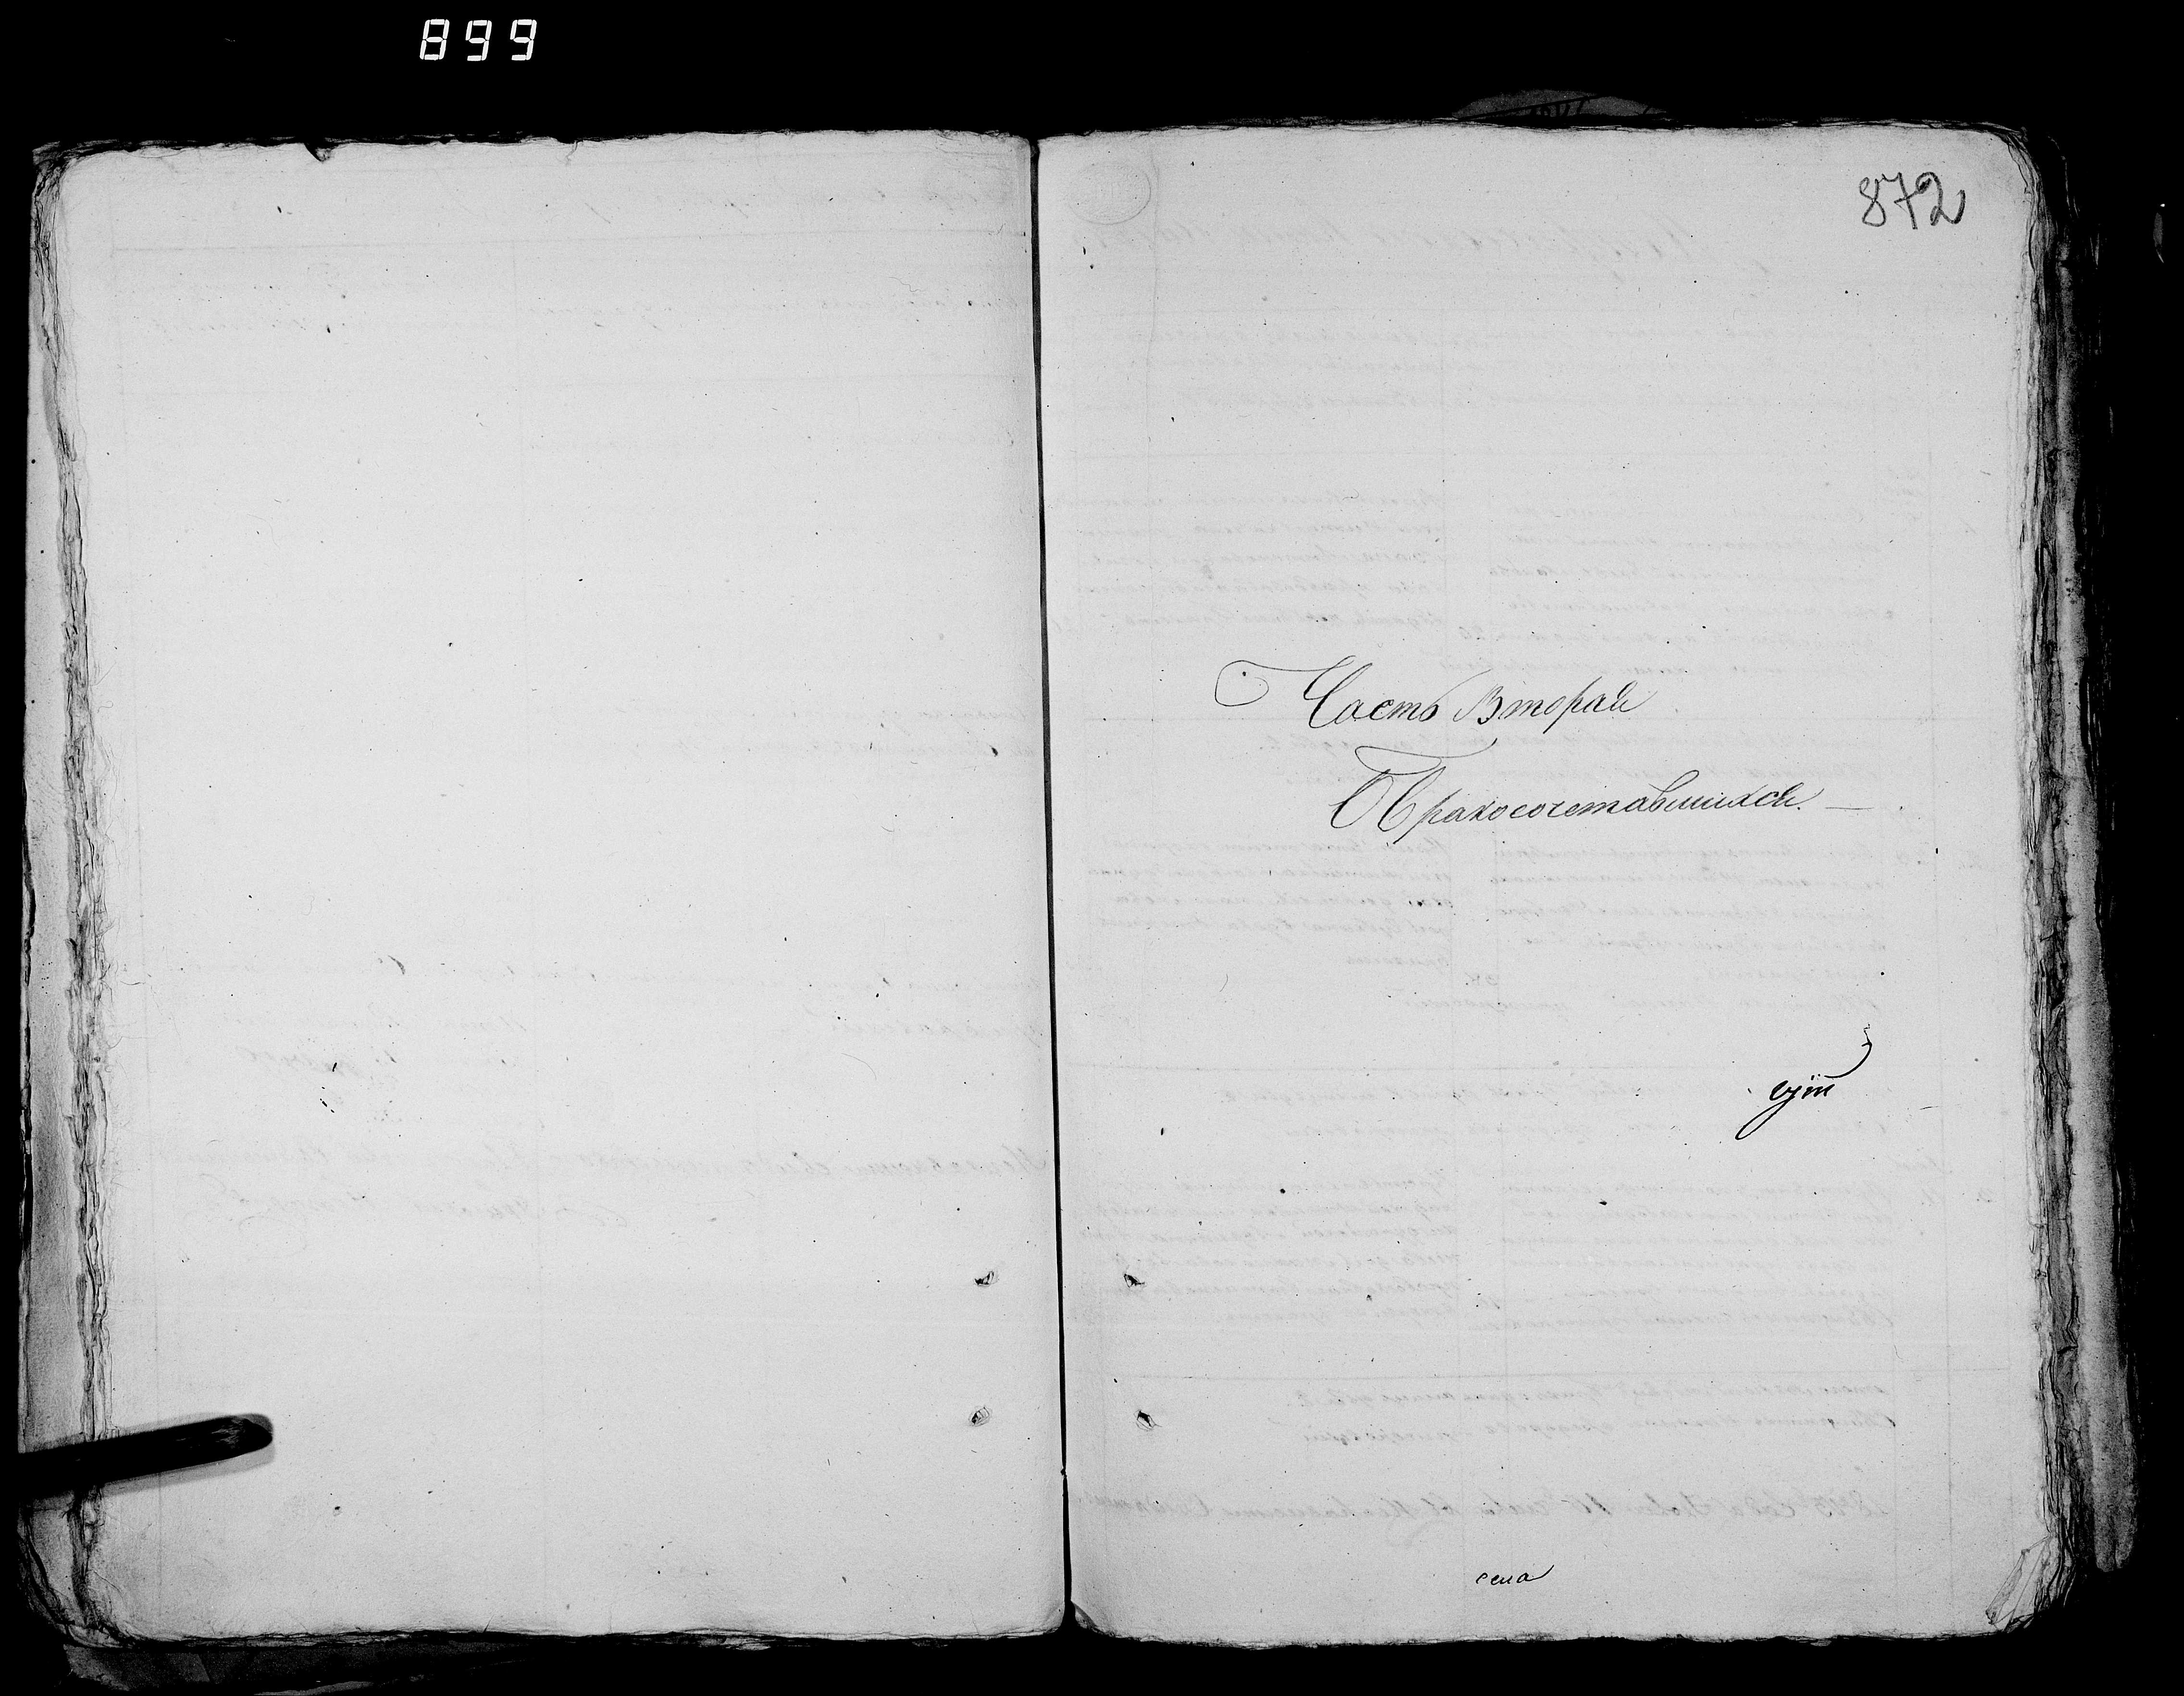 899
872
Часть Вторая
О бракосочетавшихся.
села